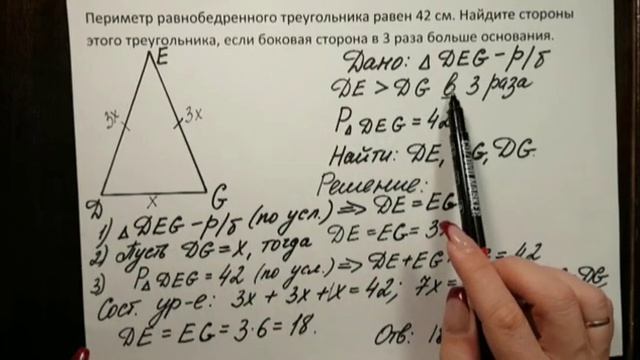 Периметр равнобедренного треугольника равен 42 см. Найдите стороны
этого треугольника, если боковая сторона в 3 раза больше основания.
Дано: △ DEG – р/б
DE > DG в 3 раза
P△ DEG = 42
Найти: DE, G, DG.
Решение:
E
3x
3x
D
x
G
1) △ DEG – р/б (по усл.) => DE = EG
2) Пусть DG = x, тогда DE = EG = 3x
3) P△ DEG = 42 (по усл.) => DE + EG = 42
Сост. ур-е: 3x + 3x + x = 42; 7x = DG
DE = EG = 3·6 = 18.
Отв: 18